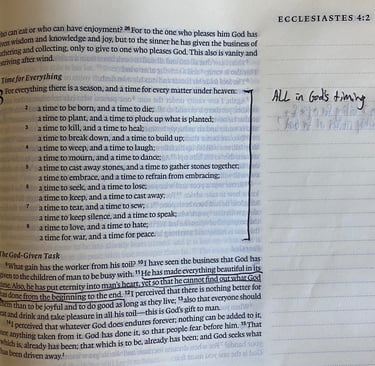 ECCLESIASTES 4:2
who can eat or who can have enjoyment? 26 For to the one who pleases him God has
given wisdom and knowledge and joy, but to the sinner he has given the business of
gathering and collecting, only to give to one who pleases God. This also is vanity and
striving after wind.
Time for Everything
3 For everything there is a season, and a time for every matter under heaven:
2 a time to be born, and a time to die;
a time to plant, and a time to pluck up what is planted;
3 a time to kill, and a time to heal;
a time to break down, and a time to build up;
4 a time to weep, and a time to laugh;
a time to mourn, and a time to dance;
5 a time to cast away stones, and a time to gather stones together;
a time to embrace, and a time to refrain from embracing;
6 a time to seek, and a time to lose;
a time to keep, and a time to cast away;
7 a time to tear, and a time to sew;
a time to keep silence, and a time to speak;
8 a time to love, and a time to hate;
a time for war, and a time for peace.
ALL in God's timing
The God-Given Task
9 What gain has the worker from his toil? 10 I have seen the business that God has
given to the children of man to be busy with. 11 He has made everything beautiful in its
time. Also, he has put eternity into man's heart, yet so that he cannot find out what God
has done from the beginning to the end. 12 I perceived that there is nothing better for
them than to be joyful and to do good as long as they live; 13 also that everyone should
eat and drink and take pleasure in all his toil—this is God's gift to man.
14 I perceived that whatever God does endures forever; nothing can be added to it,
nor anything taken from it. God has done it, so that people fear before him. 15 That
which is, already has been; that which is to be, already has been; and God seeks what
has been driven away.